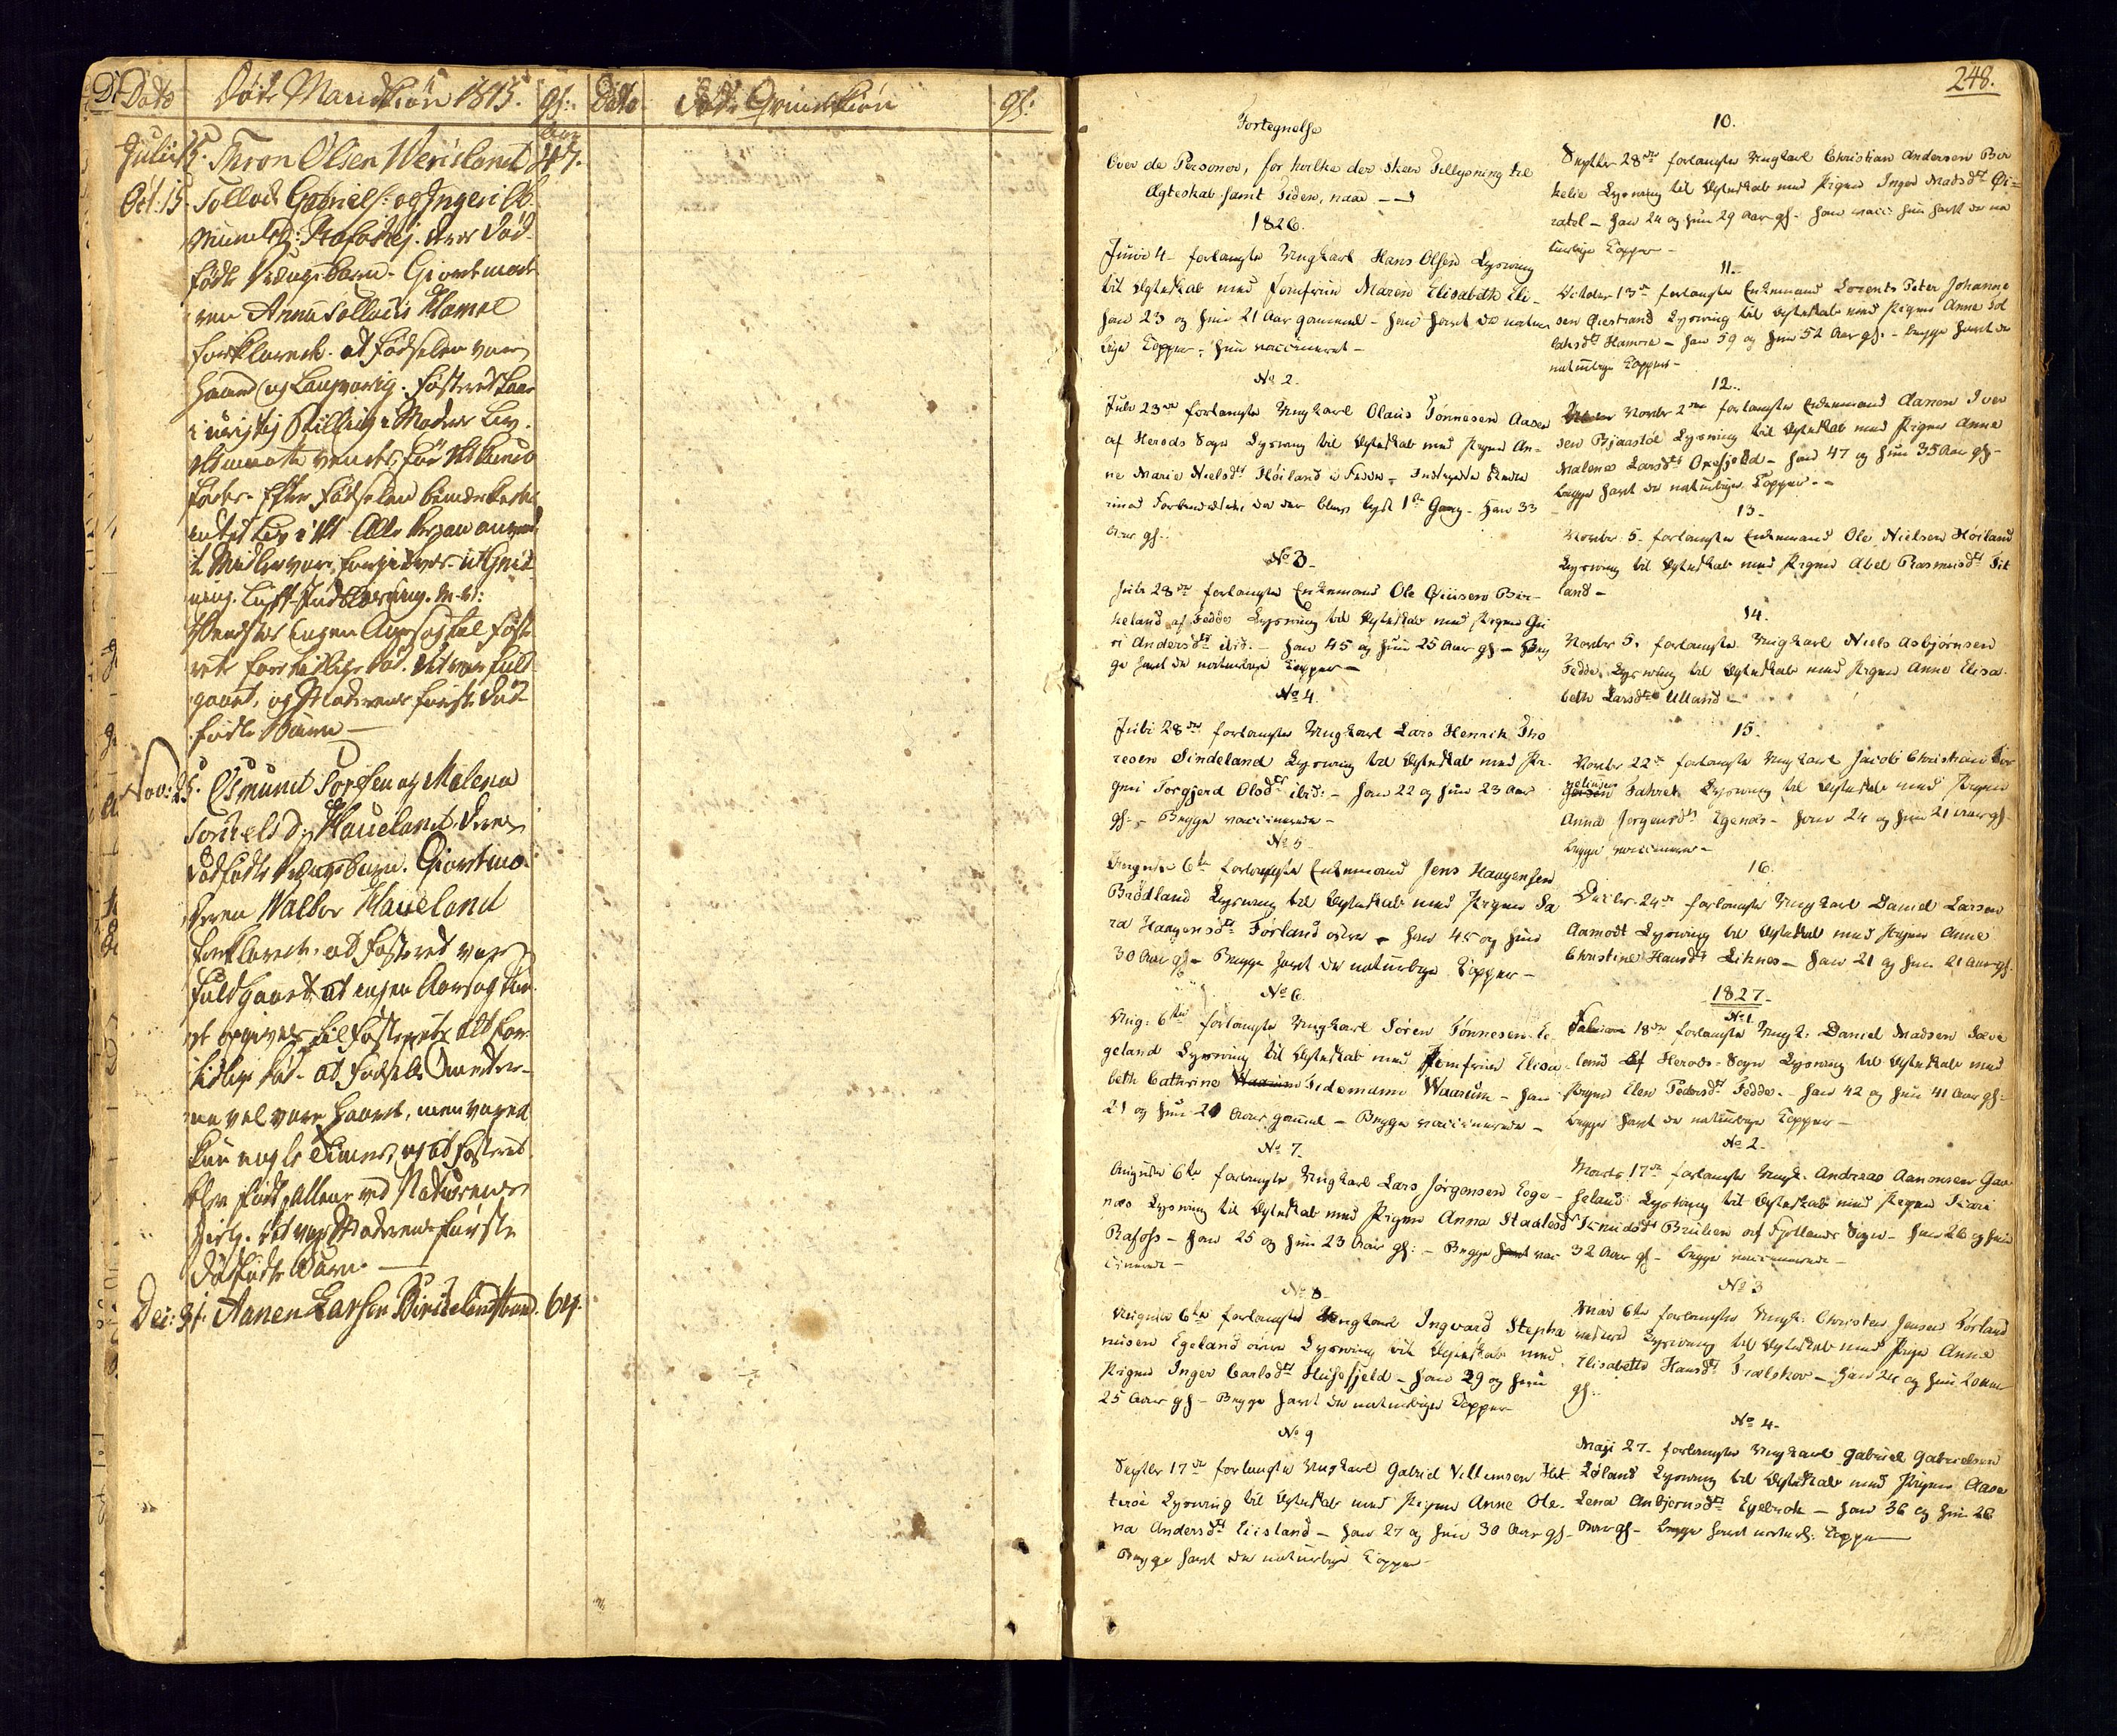 Dato
Døde Mandkiøn 1815.
gl:
Dato
Døde Qvindekiøn
gl:
Aar
Julii 15. Teron Olsen Werisland 47.
Oct. 15. Tollack Gabriels: og Ingeri
deres død-
fødte Drengebarn. Giordemode-
ren Anna Tollacks Hamel
forklarede at Fødselen var
haard og Langvarig. Fosteret laae
i urigtig Stilling i Moders Liv.
vendes, før det kunde
fødes. Efter Fødselen bemærkedes
intet Liv i det. Alle
te Midler vare forgieves
Luft-Indblæsning. m. v:
ingen Aarsag til Foste-
rets forhidlige Død. Det var fuld-
gaaet, og Moderens første død-
fødte Barn —
Nov: 25. Osmund Torelsen og Malena
Torkelsd: Haueland deres
dødfødte Drengebarn. Giordemo-
deren Walbor Haueland
forklarede, at Fosteret var
fuldgaaet, at ingen Aarsag kun-
de opgives til Fosterets alt for
tidlige Død. at Fødsels Smerter-
ne vel vare haarde, men varede
kun nogle Timer, og at Fosteret
blev født allene ved Naturens
Hielp. Det var Moderens første
dødfødte Barn. —
Dec: 31. Aanen Larsen Birkelandstrand. 64.
248.
Fortegnelse
Over de Personer, for hvilke der skeer Tillysning til
Ægteskab samt Tiden, naar —
1826.
Junii 4 - forlangte Ungkarl Hans Olsen Lysning
til Ægteskab med Jomfrue Maren Elisabeth Eli-
han 23 og hun 21 Aar gammel - han havt de natur
lige Kopper, hun vaccineret -
No 2.
Juli 23de forlangte Ungkarl Olaus Tønnesen Aasen
af Herods Sogn Lysning til Ægteskab med Pigen An-
ne Marie Nielsdt Høiland i Fedde -
Forbindelsen, da der blev lyst 1ste Gang. Han 33
Aar gl.
No 3.
Juli 28de forlangte Enkemand Ole Qviisen Bir-
keland af Fedde Lysning til Ægteskab med Pigen Gu
ri Andersdt ibid. - han 45 og hun 25 Aar gl. - Beg
ge havt de naturlige Kopper -
No 4.
Juli 28de forlangte Ungkarl Lars Henrik Tho
resen Sindeland Lysning til Ægteskab med Pi-
gen Torgjerd Olsdt ibid: - han 22 og hun 23 Aar
gl. - Begge vaccinerede -
No 5.
Augusti 6te forlangte Enkemand Jens Haagensen
Brødland Lysning til Ægteskab med Pigen Sa
ra Haagensdt Førland østre - han 45 og hun
30 Aar gl - Begge havt de naturlige Kopper -
No 6.
Aug. 6te forlangte Ungkarl Søren Tønnesen E-
geland Lysning til Ægteskab med Jomfrue Elisa-
beth Cathrine Tidemann Waarum - han
21 og hun 21 Aar gammel - Begge vaccinerede -
No 7.
Augusti 6te forlangte Ungkarl Lars Jørgensen Ege-
næs Lysning til Ægteskab med Pigen Anna Staalesdt
Rafoss - han 25 og hun 23 Aar gl: - Begge havt vac
cinerede -
No 8.
Augusti 6te forlangte Ungkarl Ingvard Stepha
nusen Egeland øvre Lysning til Ægteskab med
Pigen Inger Carlsdt Husefjeld - han 29 og hun
25 Aar gl - Begge havt de naturlige Kopper
No 9
Septbr 17de forlangte Ungkarl Gabriel Villumsen Hit
terøe Lysning til Ægteskab med Pigen Anne Ole-
na Andersdt Eiesland - han 27 og hun 30 Aar gl -
Begge havt de naturlige Kopper -
10.
Septbr 28de forlangte Ungkarl Christian Andersen Bir
kelie Lysning til Ægteskab med Pigen Inger Madsdt
- han 24 og hun 29 Aar gl - han vacci: hun havt de na
turlige Kopper -
11.
October 13de forlangte Enkemand Lorents Peter Johanne
sen Øiestrand Lysning til Ægteskab med Pigen Anne
- han 59 og hun 52 Aar gl. - begge havt de
naturlige Kopper -
12.
Novbr 2den forlangte Enkemand Aanen Iver
sen Bjaastøl Lysning til Ægteskab med Pigen Anne
Malene Larsdt Oxefjeld - han 47 og hun 35 Aar gl -
begge havt de naturlige Kopper -
13.
Novbr 5. forlangte Enkemand Ole Nielsen Høiland
Lysning til Ægteskab med Pigen Abel Rasmusdt
land -
14.
Novbr 5. forlangte Ungkarl Niels Asbjørnsen
Fedde Lysning til Ægteskab med Pigen Anne Elisa-
beth Larsdt Ulland -
15.
Novbr 22de forlangte Ungkarl Jacob Christian
Lysning til Ægteskab med Pigen
Anna Jorgensdt Egenæs - han 24 og hun 21 Aar gl
begge vaccinerede -
16.
Decbr 24de forlangte Ungkarl Daniel Larsen
Aamodt Lysning til Ægteskab med Pigen Anne
Christine Hansdt Liknes - han 21 og hun 21 Aar gl.
1827.
No 1.
Februar 18de forlangte Ungk: Daniel Madsen
Af Herods-Sogn Lysning til Ægteskab med
Pigen Elen Pedersdt Fedde. - han 42 og hun 41 Aar gl:
begge havt de naturlige Kopper -
No 2.
Marts 17de forlangte Ungk. Andreas Aanonsen
heland Lysning til Ægteskab med Pigen Kari
Knudsdt Brulien af Fjotlands Sogn - han 26 og hun
32 Aar gl - begge vaccinerede -
No 3
Maii 6te forlangte Ungk: Christen Jensen Førland
nedere Lysning til Ægteskab med Pigen Anne
Elisabeth Hansdt Trælskor - han 24 og hun 20 Aar
gl.
No 4.
Maji 27. forlangte Ungkarl Gabriel Gabrielsen
Løland Lysning til Ægteskab med Pigen Aase
Lena Anbjornsdt Egelude - han 36 og hun 26
Aar gl - begge havt naturl: Kopper